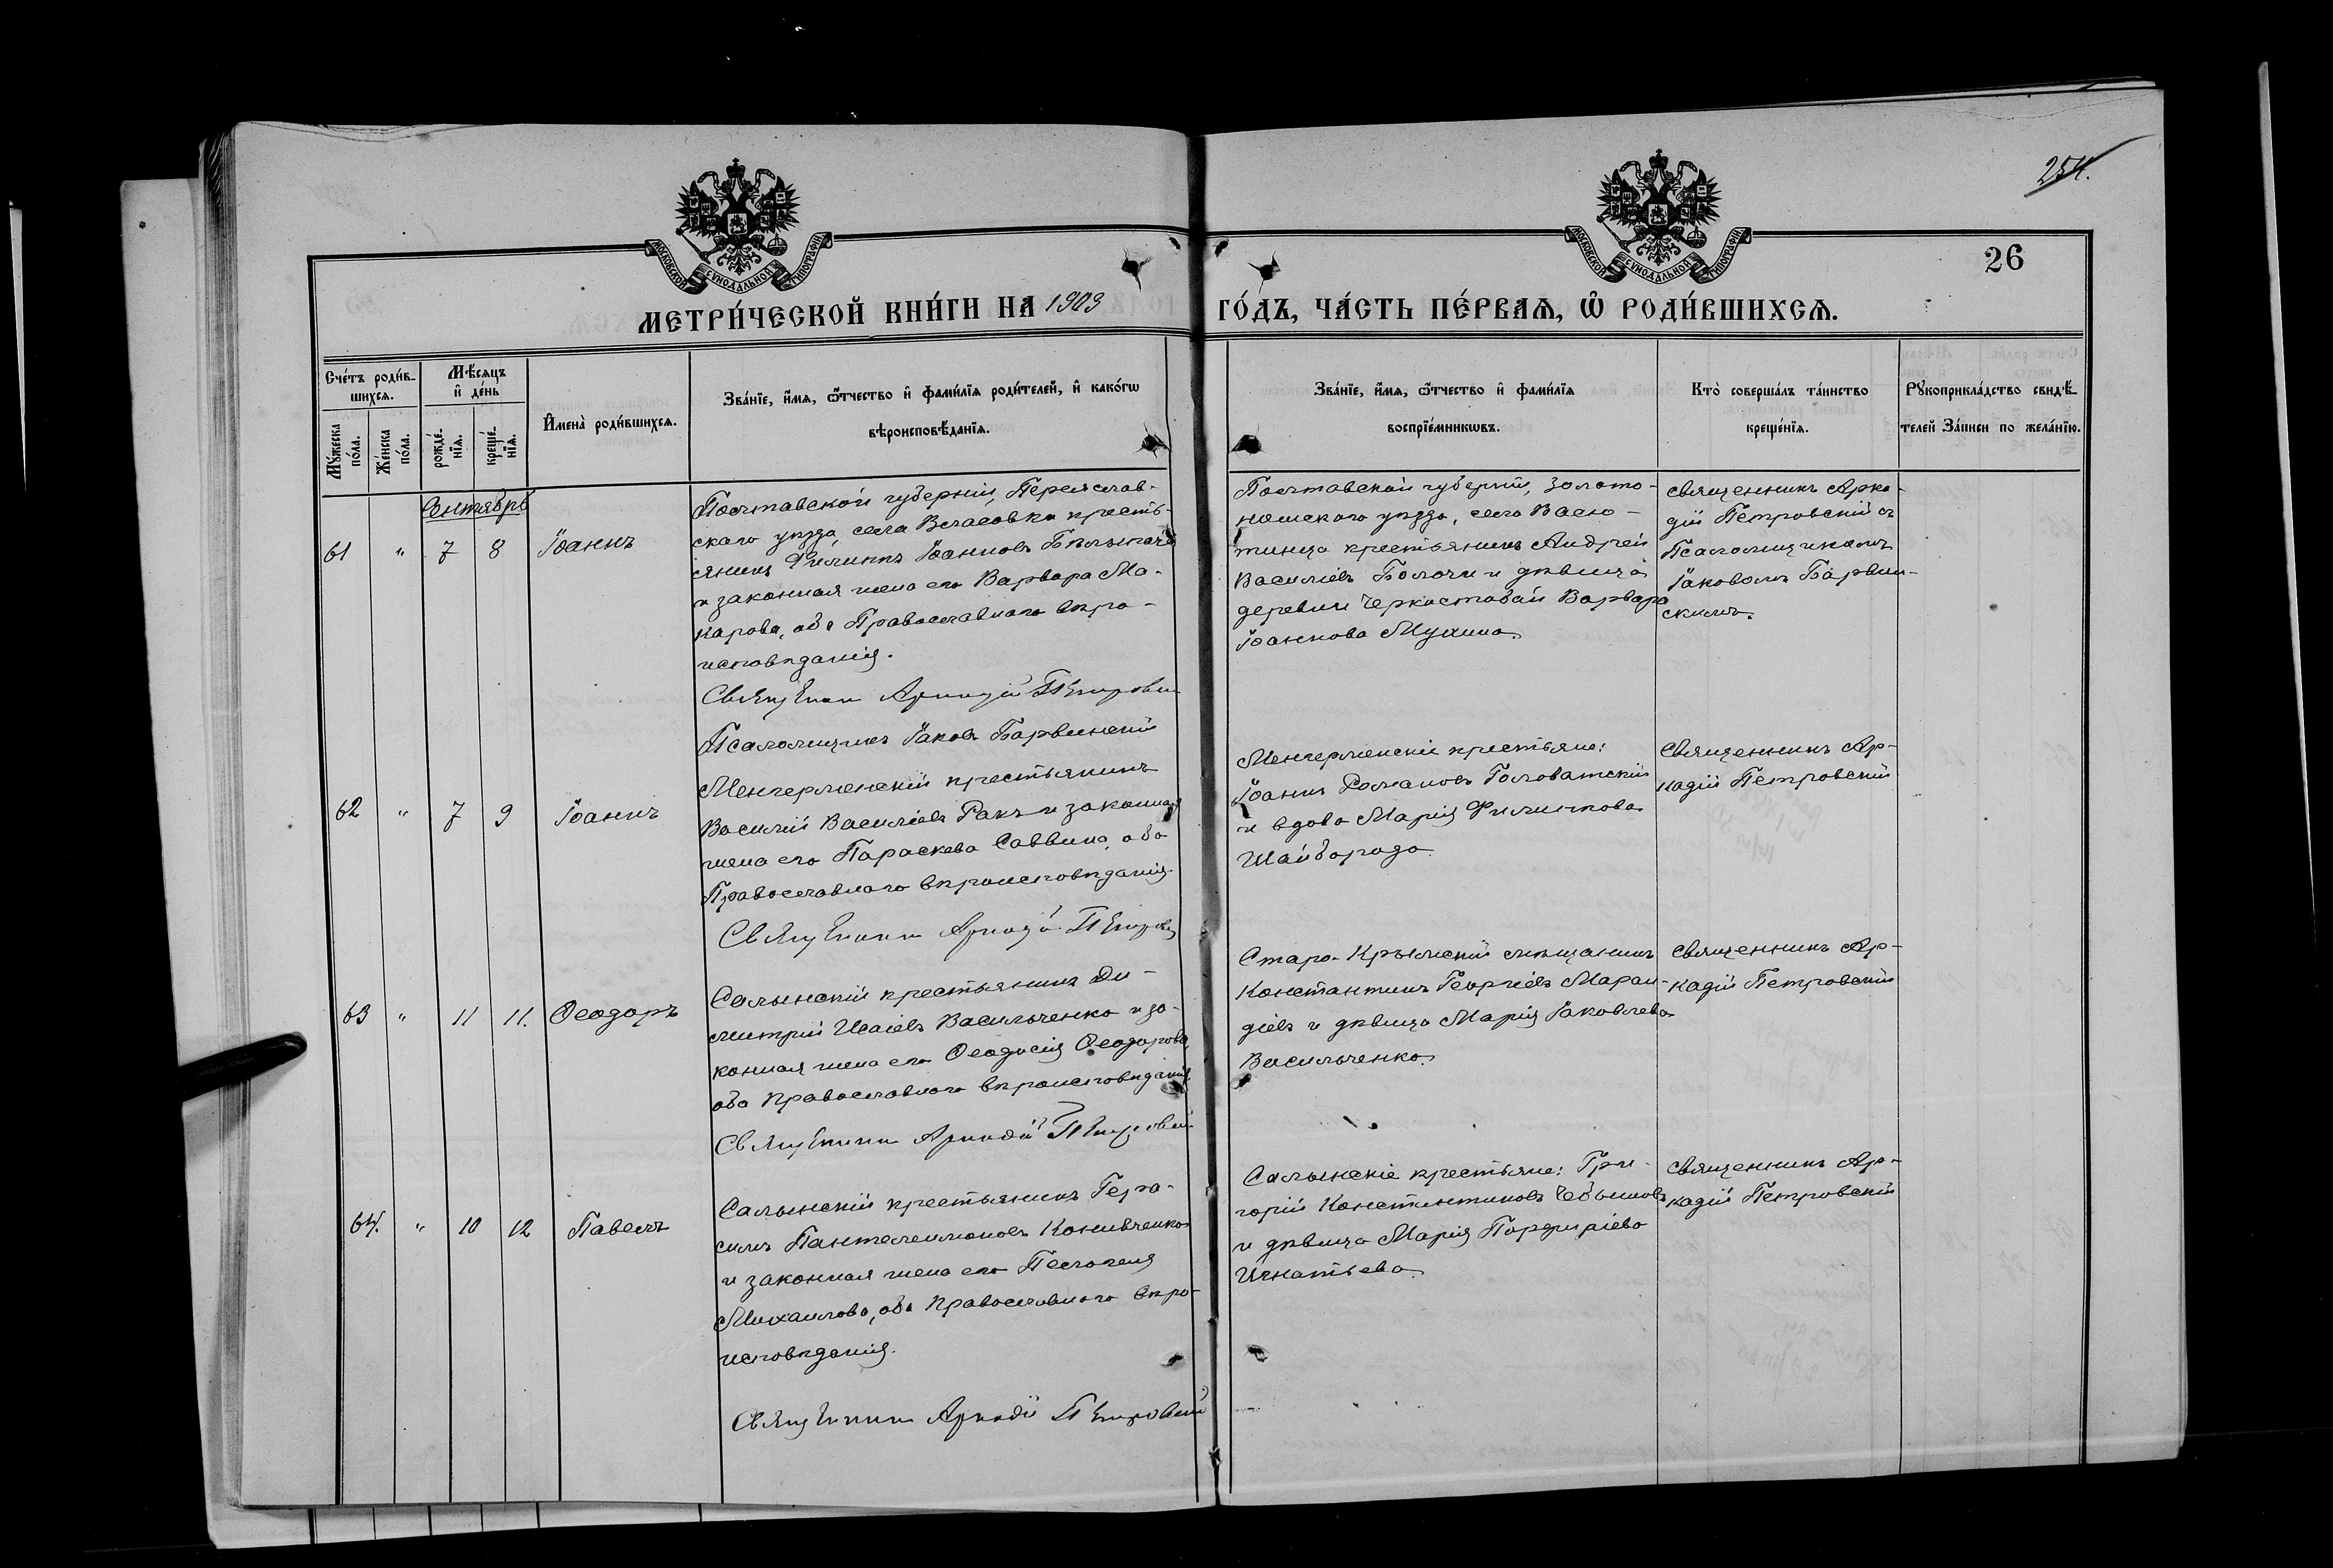 254.
26
МОСКОВСКОЙ СУНОДАЛЬНОЙ ТИПОГРАФІИ
МОСКОВСКОЙ СУНОДАЛЬНОЙ ТИПОГРАФІИ
МЕТРИ́ЧЕСКОЙ КНИ́ГИ НА 1909 ГО́ДЪ, ЧА́СТЬ ПЕ́РВАѦ, Ѡ҆ РОДИ́ВШИХСѦ.
Сче́тъ роди́в-
шихсѧ.
Му́жеска
по́ла.
Же́нска
по́ла.
Мѣ́сѧцъ
и҆ де́нь
рожде́-
нїѧ.
креще́-
нїѧ.
И҆мена̀ роди́вшихсѧ.
Зва́нїе, и҆́мѧ, ѻ҆́тчество и҆ фами́лїѧ роди́телей, и҆ како́гѡ
вѣроисповѣ́данїѧ.
Зва́нїе, и҆́мѧ, ѻ҆́тчество и҆ фами́лїѧ
воспрїе́мникѡвъ.
Кто̀ соверша́лъ та́инство
креще́нїѧ.
Рꙋкоприкла́дство свидѣ́-
телей за́писи по жела́нїю.
Сентябрь
61 " 7 8 Іоаннъ
Полтавской губерніи, Переяслав-
скаго уѣзда, села Власовки кресть-
янинъ Филиппъ Іоанновъ
и законная жена его Варвара Ма-
карова, оба Православнаго вѣро-
исповѣданія.
Священникъ Аркадій Петровскій
Псаломщикъ Іаковъ Барвинскій
Полтавской губерніи, Золото-
ношскаго уѣзда, села Васю-
тинца крестьянинъ Андрей
Василіевъ и дѣвица
деревни Варвара
Іоаннова Мухина.
Священникъ Арка-
дій Петровскій съ
Псаломщикомъ
Іаковомъ Барвин-
скимъ.
62 " 7 9 Іоаннъ
Менгерменскій крестьянинъ
Василій Василіевъ Ракъ и законная
жена его Параскева Саввина, оба
Православнаго вѣроисповѣданія.
Священникъ Аркадій Петровскій
Менгерменскіе крестьяне:
Іоаннъ Романовъ Головатскій
и вдова Марія Филиппова
Шайборада.
Священникъ Ар-
кадій Петровскій
63 " 11 11. Ѳеодоръ
Салынскій крестьянинъ Ди-
митрій Исаіевъ Васильченко и за-
конная жена его Ѳеодосія Ѳеодорова,
оба Православнаго вѣроисповѣданія.
Священникъ Аркадій Петровскій
Старо-Крымскій мѣщанинъ
Константинъ Георгіевъ Маран-
діевъ и дѣвица Марія Іаковлева
Васильченко.
Священникъ Ар-
кадій Петровскій
64. " 10 12 Павелъ
Салынскій крестьянинъ Гера-
симъ Пантелеимоновъ Конивченко
и законная жена его Пелагея
Михаилова, оба Православнаго вѣро-
исповѣданія.
Священникъ Аркадій Петровскій
Салынскіе крестьяне: Гри-
горій Константиновъ Чебышовъ
и дѣвица Марія Порфиріева
Игнатьева.
Священникъ Ар-
кадій Петровскій